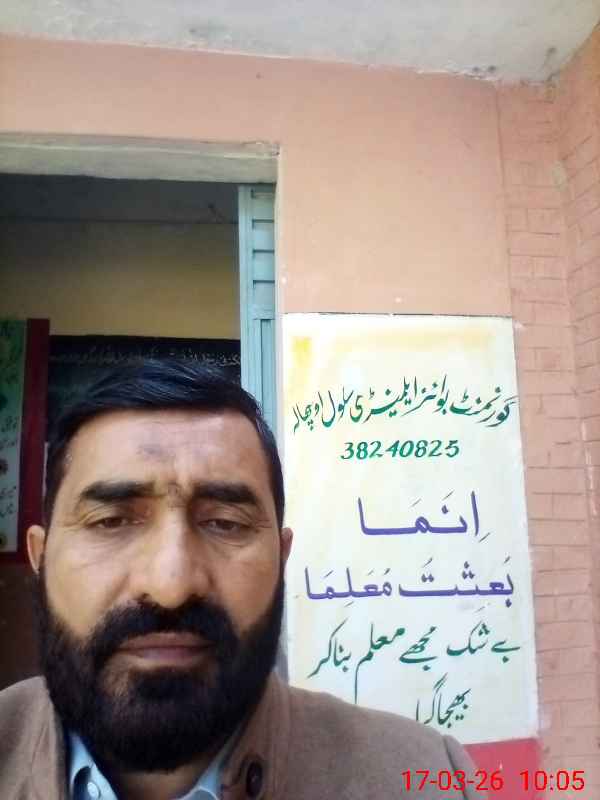 گورنمنٹ بوائز ایلیمنٹری سکول اوچھالہ
38240825
اِنَمَا
بُعِثتُ مُعَلِمَا
بے شک مجھے معلم بنا کر
بھیجا گیا
17-03-26 10:05